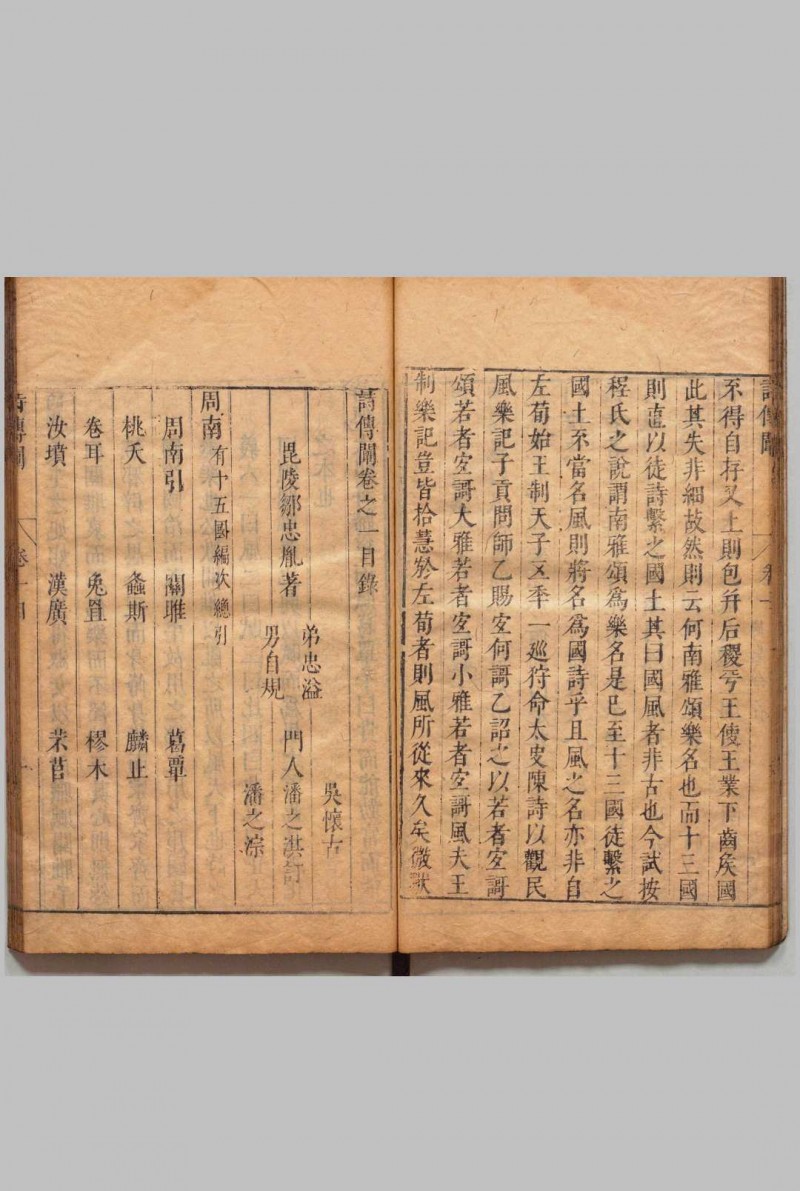 詩傳闡
卷一
不得自存又上則包并后稷兮王使王業下齒矣國
此其失非細故然則云何南雅頌樂名也而十三國
則直以徒詩繫之國土其曰國風者非古也今試按
程氏之說謂南雅頌爲樂名是已至十三國徒繫之
國土不當名風則將名爲國詩乎且風之名亦非自
左荀始王制天子五年一巡狩命太史陳詩以觀民
風樂記子貢問師乙賜宜何謌乙詔之以若者宜謌
頌若者宜謌大雅若者宜謌小雅若者宜謌風夫王
制樂記豈皆拾慧於左荀者則風所從來久矣微
詩傳闡卷之一目錄
吳懷古
弟忠溢
毘陵鄒忠胤著 門人潘之淇訂
男自規
潘之淙
周南 有十五國編次總引
周南引 關雎 葛覃
桃夭 螽斯 麟止
卷耳 兔罝 樛木
汝墳 漢廣 芣苢
詩傳闡